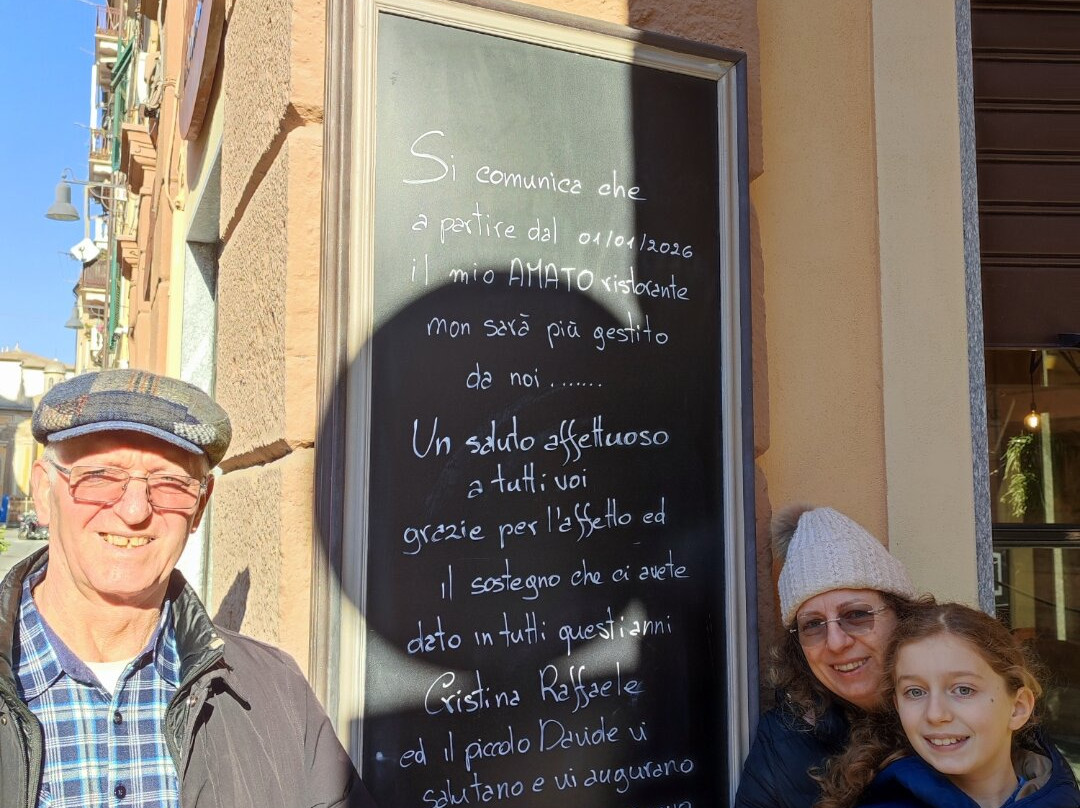 Si comunica che
a partire dal 01/01/2026
il mio AMATO ristorante
non sarà più gestito
da noi .......
Un saluto affettuoso
a tutti voi
grazie per l'affetto ed
il sostegno che ci avete
dato in tutti questi anni
Cristina Raffaele
ed il piccolo Davide vi
salutano e vi augurano